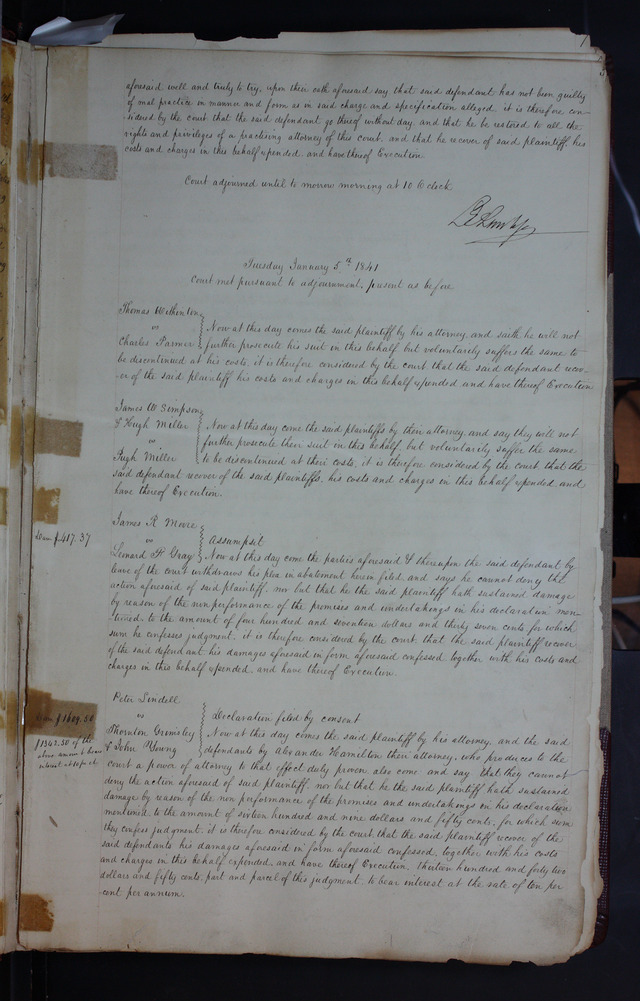 aforesaid well and truly to try, upon their oath aforesaid say that said defendant has not been guilty
of mal practice in manner and form as in said charge and specification alleged. it is therefore con-
sidered by the court that the said defendant go thereof without day, and that he be restored to all the
rights and privileges of a practising attorney of this court, and that he recover of said plaintiff his
costs and charges in this behalf expended and have thereof Execution
Court adjourned until to morrow morning at 10 O Clock
Tuesday January 5th 1841
Court met pursuant to adjournment, present as before
Thomas Withinton
vs
Charles Farmer
Now at this day comes the said plaintiff by his attorney, and saith he will not
further prosecute his suit in this behalf but voluntarily suffers the same to
be discontinued at his costs, it is therefore considered by the court that the said defendant recov-
er of the said plaintiff his costs and charges in this behalf expended and have thereof Execution
James W Simpson
& Hugh Miller
vs
Pugh Miller
Now at this day come the said plaintiffs by their attorney, and say they will not
further prosecute their suit in this behalf but voluntarily suffer the same
to be discontinued at their costs, it is therefore considered by the court that the
said defendant recover of the said plaintiffs, his costs and charges in this behalf expended, and
have thereof Execution.
James R Moore
vs
Leonard H Gray
Dam $417.37
Assumpsit
Now at this day come the parties aforesaid & thereupon the said defendant by
leave of the court withdraws his plea in abatement herein filed, and says he cannot deny the
action aforesaid of said plaintiff, nor but that he the said plaintiff hath sustained damage
by reason of the nonperformance of the promises and undertakings in his declaration men-
tioned, to the amount of four hundred and seventeen dollars and thirty seven cents, for which
sum he confesses judgment, it is therefore considered by the court, that the said plaintiff recover
of the said defendant his damages aforesaid in form aforesaid confessed together with his costs and
charges in this behalf expended, and have thereof Execution.
Peter Lindell
vs
Thornton Grimsley
& John Young
Dam $1609.50
$1342.50 of the
above amount bears
interest at 10 pr ct
Declaration filed by consent
Now at this day comes the said plaintiff by his attorney, and the said
defendants by Alexander Hamilton their attorney, who produces to the
court a power of attorney to that effect duly proven also come and say that they cannot
deny the action aforesaid of said plaintiff, nor but that he the said plaintiff hath sustained
damage by reason of the non performance of the promises and undertakings in his declaration
mentioned to the amount of sixteen hundred and nine dollars and fifty cents; for which sum
they confess judgment. it is therefore considered by the court that the said plaintiff recover of the
said defendants his damages aforesaid in form aforesaid confessed, together with his costs
and charges in this behalf expended, and have thereof Execution, Thirteen hundred and forty two
dollars and fifty cents, part and parcel of this judgment to bear interest at the rate of ten per
cent per annum.